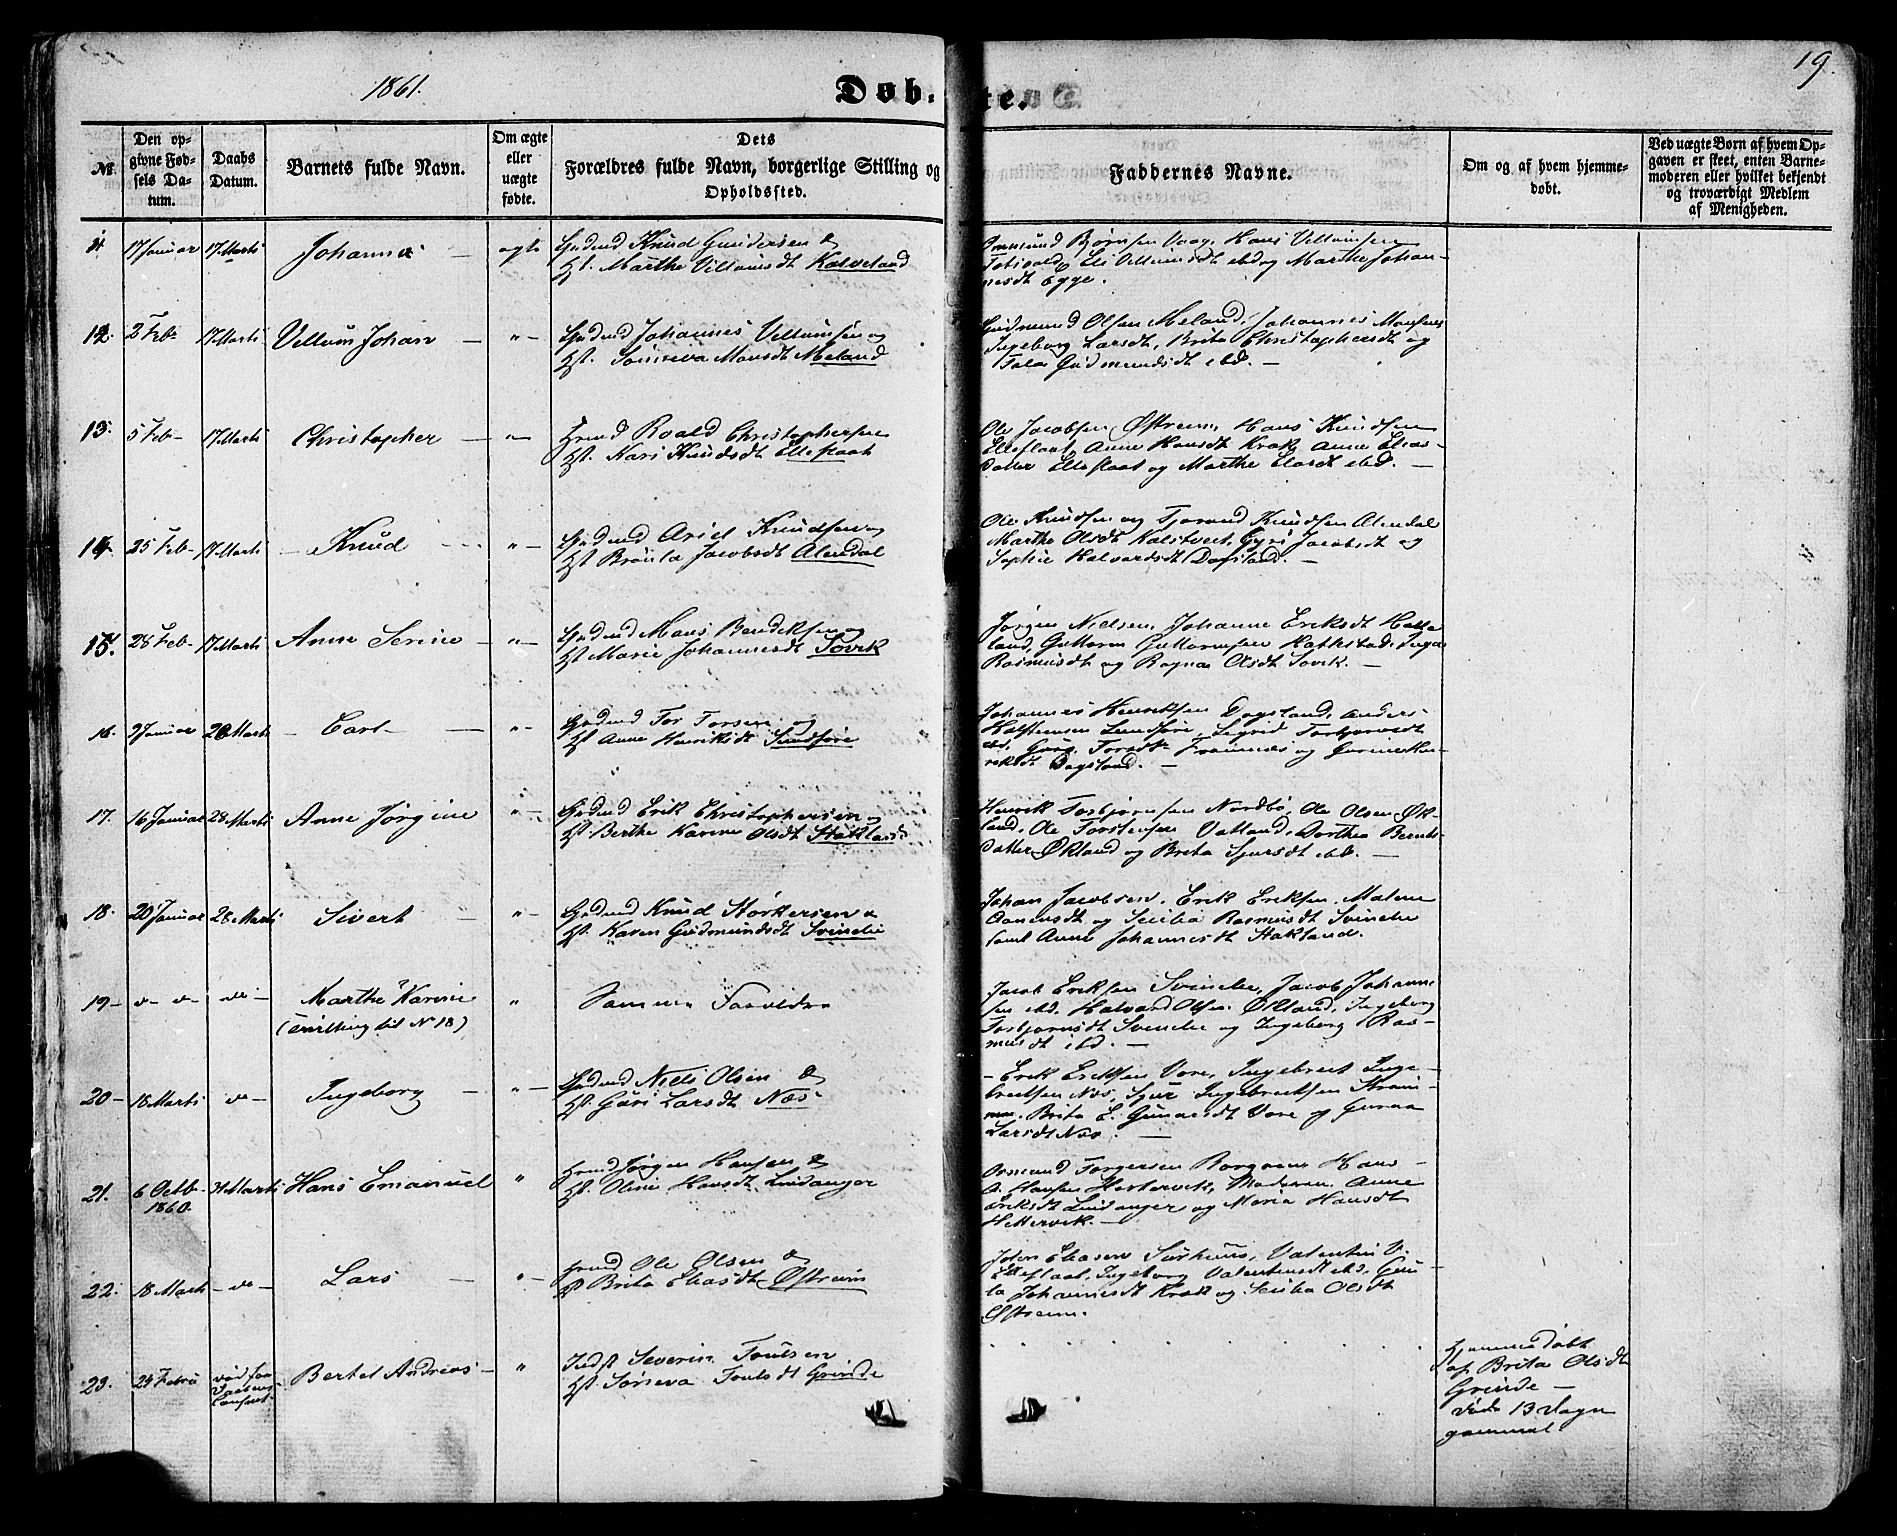 1861.
Døb-te.
19.
№
Den opgivne Fødsels Datum.
Daabs Datum.
Barnets fulde Navn.
Om ægte eller uægte fødte.
Dets Forældres fulde Navn, borgerlige Stilling og Opholdssted.
Faddernes Navne.
Om og af hvem hjemmedøbt.
Ved uægte Børn af hvem Opgaven er skeet, enten Barnemoderen eller hvilket bekjendt og troværdigt Medlem af Menigheden.
11 17 Januar 17 Marts Johanna ægte Grdmd Knud Gundersen &
Hst. Marthe Villumsdt Kalveland
Ormund Bjørnsen Vaag, Hans Villumsen
Eli Villumsdt ibd og Marthe Johan-
nesdt Egge.
12. 2 Feb. 17 Marts Villum Johan " Grdmd Johannes Villumsen og
Hst. Sønneva Monsdt Meland
Gudmund Olsen Meland, Johannes Monsen
Ingeborg Larsdt, Brita Christophersdt og
Gudmundsdt ibd. —
13. 5 Feb 17 Marts Christopher " Roald Christophersen
Hst. Kari Knudsdt Elleflaat
Ole Jacobsen Østreim, Hans Knudsen
Elleflaat, Anne Hansdt Krak, Anne Elias-
datter Elleflaat og Marthe Elasdt ibd. —
14. 25 Feb 17 Marts Knud " Grdmd Knudsen og
Hst Jacobsdt Alendal
Ole Knudsen og Tjerand Knudsen Alendal
Marthe Olsdt Kalstveit, Gyri Jacobsdt og
Sophie Halvardsdt Dagsland. —
15. 28 Feb 17 Marts Anne Serine " Grdmd Mons Bendiksen og
Hst Marie Johannesdt Søvik
Jørgen Nielsen, Johanne Eriksdt Helle
land, Guttorm Guttormsen
Rasmusdt og Ragna Olsdt Søvik. —
16. 2 Januar 28 Marts Carl " Grdmd Tor Torsen og
Hst Anne Henriksdt Sundføre
Johannes Henriksen Dagsland, Anders
Halstensen Sundføre, Sigrid Torbjørnsdt
ibd, Torsdt Framnes og Gurine Hen
riksdt Dagsland. —
17. 16 Januar 28 Marts Anne Jørgine " Grdmd Erik Christophersen og
Hst. Berthe Karine Olsdt Stakland
Henrik Torbjørnsen Nordbø, Ole Olsen Øk-
land, Ole Torstensen Vatland, Dorthea Bernts-
datter Økland og Brita Sjursdt ibd. —
18. 20 Januar 28 Marts Sivert " Grdmd Knud Størkersen &
Hst. Karen Gudmundsdt Svinelie
Johan Jacobsen, Erik Eriksen, Malene
og Seselia Rasmusdt Svinelie
samt Anne Johannesdt Stakland.
19 — Marthe Karine " Samme Forældre
(Tvilling til N 18)
Jacob Eriksen Svinelie, Jacob Johanne
sen ibd. Halvard Olsen Økland, Ingeborg
Torbjørnsdt Svinelie og Ingeborg Ras-
musdt ibd. —
20 — 18 Marts Ingeborg " Grdmd Niels Olsen &
Hst. Guri Larsdt Næs
Erik Eriksen Vore, Ingebret Inge-
bretsen Næs, Sjur Ingebretsen
Brita E. Gunarsdt Vore og
Larsdt Næs. —
21. 6 Octb 1860. 31 Marts Hans Emanuel " Jørgen Hansen &
Hst. Oline Hansdt Lindanger
Ormund Torgersen Borgøen, Hans
Hansen Hettervik, Moderen, Anne
Eriksdt Lindanger og Maria Hansdt
Hettervik. —
22. 18 Marts Lars " Ole Olsen &
Hst Brita Eliasdt Østreim
John Eliasen Sørhuus, Valentin V.
Elleflaat, Ingeborg Valentinsdt ibd,
Johannesdt Krak og Seselia Olsdt
Østreim.
23. 24 Febru død før Bertel Andreas " Indst Severin Toulsen
Hst. Sønneva Toulsdt Grinde
Hjemmedøbt
af Brita Olsdt
Grinde —
døde 13 Dage
gammal.